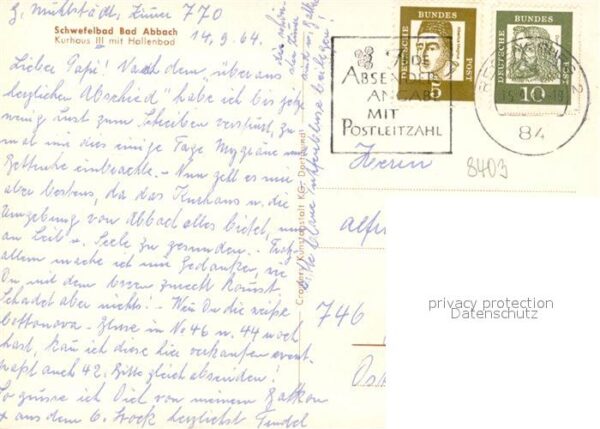 Zimmer 770
Schwefelbad Bad Abbach
Kurhaus III mit Hallenbad
14.9.64.
Lieber Papi! Nach dem "überaus
herzlichen Abschied" habe ich bis jetzt
wenig Lust zum Schreiben verspürt, zu
mal mir dies einige Tage Migräne und
einbrachte. - Nun geht es mir
aber bestens, da das Kurhaus u. die
Umgebung von Abbach alles bietet, um
an Leib u. Seele zu gesunden. - Trotz
allem mache ich mir Gedanken, wie
Du mit dem kannst.
Schadet aber nichts! - Wenn Du die weiße
Cottonova - Bluse in No 46 u. 44 noch
hast, kann ich diese hier verkaufen event.
paßt auch 42. Bitte gleich absenden!
So grüsse ich Dich von meinem Balkon
aus dem 6. Stock herzlichst
Bitte blaue beilegen!
Cramers Kunstanstalt KG., Dortmund
DEUTSCHE BUNDESPOST
5
DEUTSCHE BUNDESPOST
10
ABSENDER
ANGABE
MIT
POSTLEITZAHL
84
Herrn
8403
746
privacy protection
Datenschutz